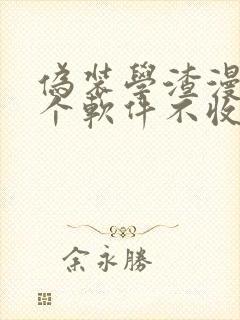 偽裝學渣漫
个軟件不收
余永勝